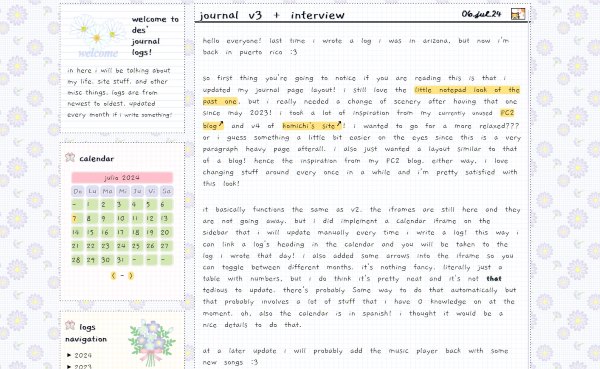 welcome to
des'
journal
logs!
welcome
in here i will be talking about
my life, site stuff, and other
misc things. logs are from
newest to oldest. updated
every month if i write something!
calendar
julio 2024
Do Lu Ma Mi Ju Vi Sa
- 1 2 3 4 5 6
7 8 9 10 11 12 13
14 15 16 17 18 19 20
21 22 23 24 25 26 27
28 29 30 31 - - -
( - )
logs
navigation
▶ 2024
▶ 2023
journal v3 + interview
06.jul.24
hello everyone! last time i wrote a log i was in arizona, but now i'm
back in puerto rico :3
so first thing you're going to notice if you are reading this is that i
updated my journal page layout! i still love the little notepad look of the
past one, but i really needed a change of scenery after having that one
since may 2023! i took a lot of inspiration from my currently unused FC2
blog↗ and v4 of komichi's site↗! i wanted to go for a more relaxed???
or i guess something a little bit easier on the eyes since this is a very
paragraph heavy page afterall. i also just wanted a layout similar to that
of a blog! hence the inspiration from my FC2 blog. either way, i love
changing stuff around every once in a while and i'm pretty satisfied with
this look!
it basically functions the same as v2. the iframes are still here and they
are not going away, but i did implement a calendar iframe on the
sidebar that i will update manually every time i write a log! this way i
can link a log's heading in the calendar and you will be taken to the
log i wrote that day! i also added some arrows into the iframe so you
can toggle between different months. it's nothing fancy, literally just a
table with numbers, but i do think it's pretty neat and it's not that
tedious to update. there's probably Some way to do that automatically but
that probably involves a lot of stuff that i have 0 knowledge on at the
moment. oh, also the calendar is in spanish! i thought it would be a
nice details to do that.
at a later update i will probably add the music player back with some
new songs :3